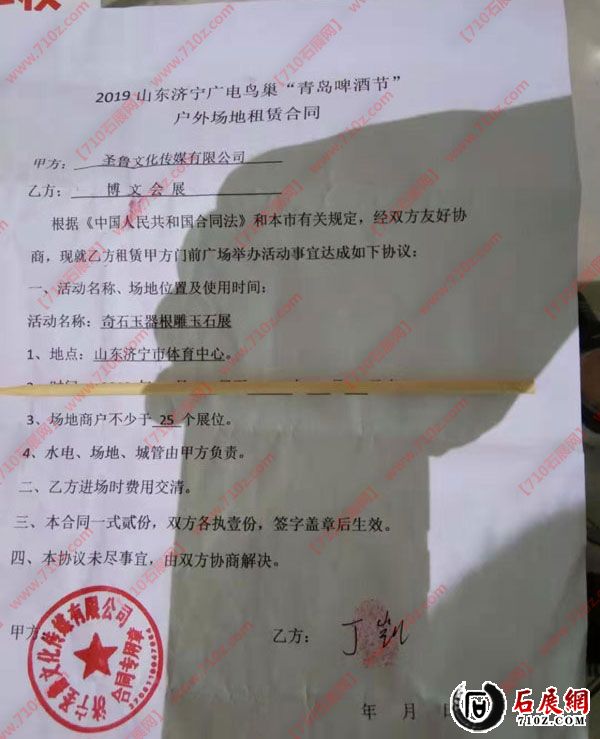 2019 山东济宁广电鸟巢“青岛啤酒节”
户外场地租赁合同
甲方： 圣鲁文化传媒有限公司
乙方： 博文会展
根据《中国人民共和国合同法》和本市有关规定，经双方友好协
商，现就乙方租赁甲方门前广场举办活动事宜达成如下协议：
一、活动名称、场地位置及使用时间：
活动名称：奇石玉器根雕玉石展
1、地点：山东济宁市体育中心。
3、场地商户不少于 25 个展位。
4、水电、场地、城管由甲方负责。
二、乙方进场时费用交清。
三、本合同一式贰份，双方各执壹份，签字盖章后生效。
四、本协议未尽事宜，由双方协商解决。
甲方
乙方： 丁凯
济宁圣鲁文化传媒有限公司
合同专用章
年 月
石展網
710Z.COM
【710石展网】
www.710z.com